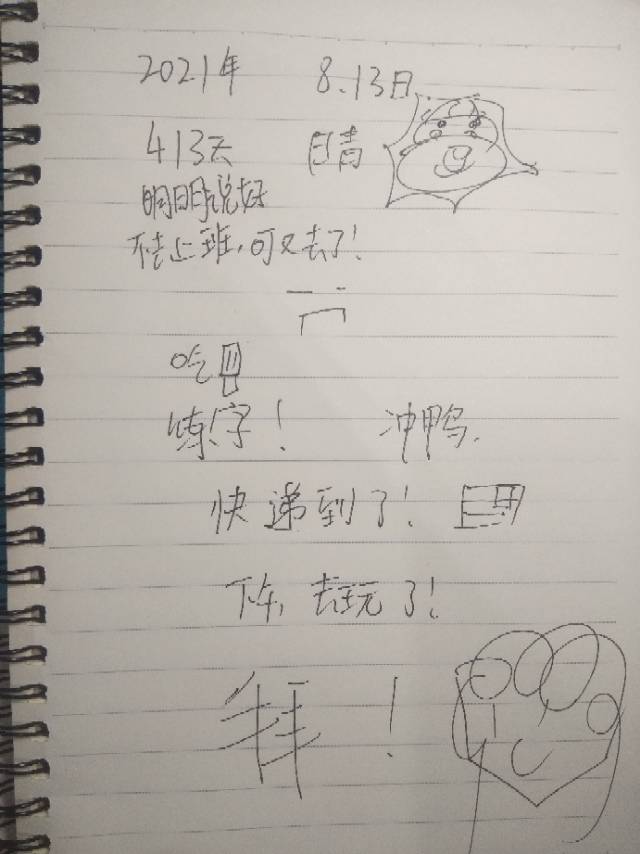 2021年 8.13日
413天 晴
明明说好
不去上班，可又去了！
吃
练字！ 冲鸭.
快递到了！
下午，去玩了！
拜！